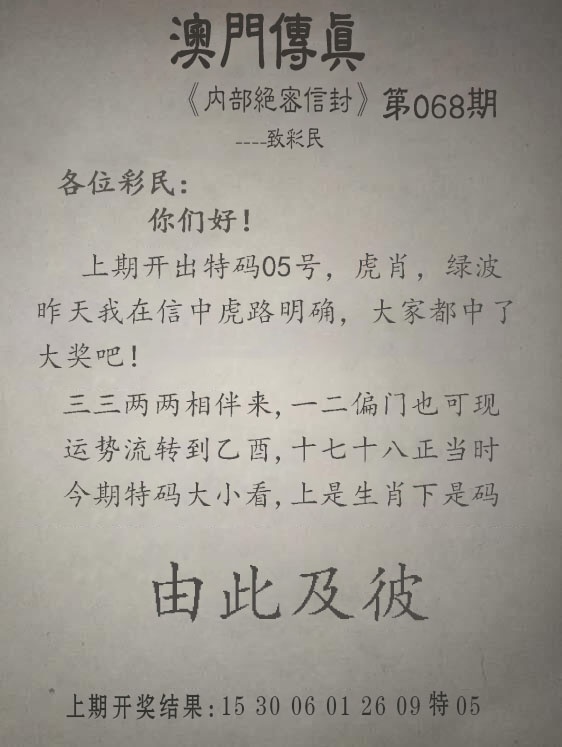 澳門傳眞
《内部絕密信封》第068期
----致彩民
各位彩民：
你们好！
上期开出特码05号，虎肖，绿波
昨天我在信中虎路明确，大家都中了
大奖吧！
三三两两相伴来,一二偏门也可现
运势流转到乙酉,十七十八正当时
今期特码大小看,上是生肖下是码
由此及彼
上期开奖结果:15 30 06 01 26 09 特 05